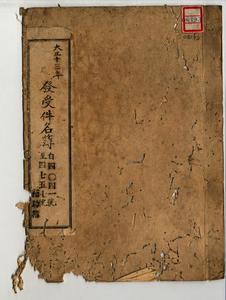 大正十三年
發受件名簿
自四〇四一號
至四七五七號